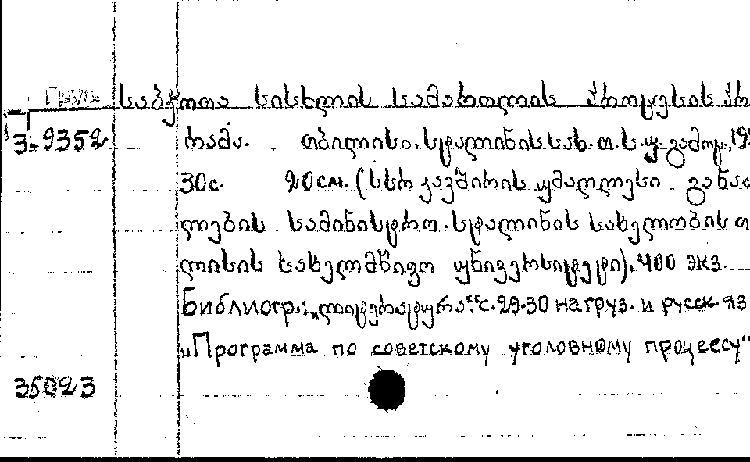 საბჭოთა სისხლის სამართლის პროცესის პრ
3-9352 რამა. თბილისი. სტალინის სახ. თ. ს. უ. გამოც., 19
30с. 20см. (სსრ კავშირის უმაღლესი განა
ლების სამინისტრო. სტალინის სახელობის თ
ლისის სახელმწიფო უნივერსიტეტი), 400 экз.
Библиогр.: „ლიტერატურა" с. 29-30 на груз. и русск. яз
„Программа по советскому уголовному процессу"
35023